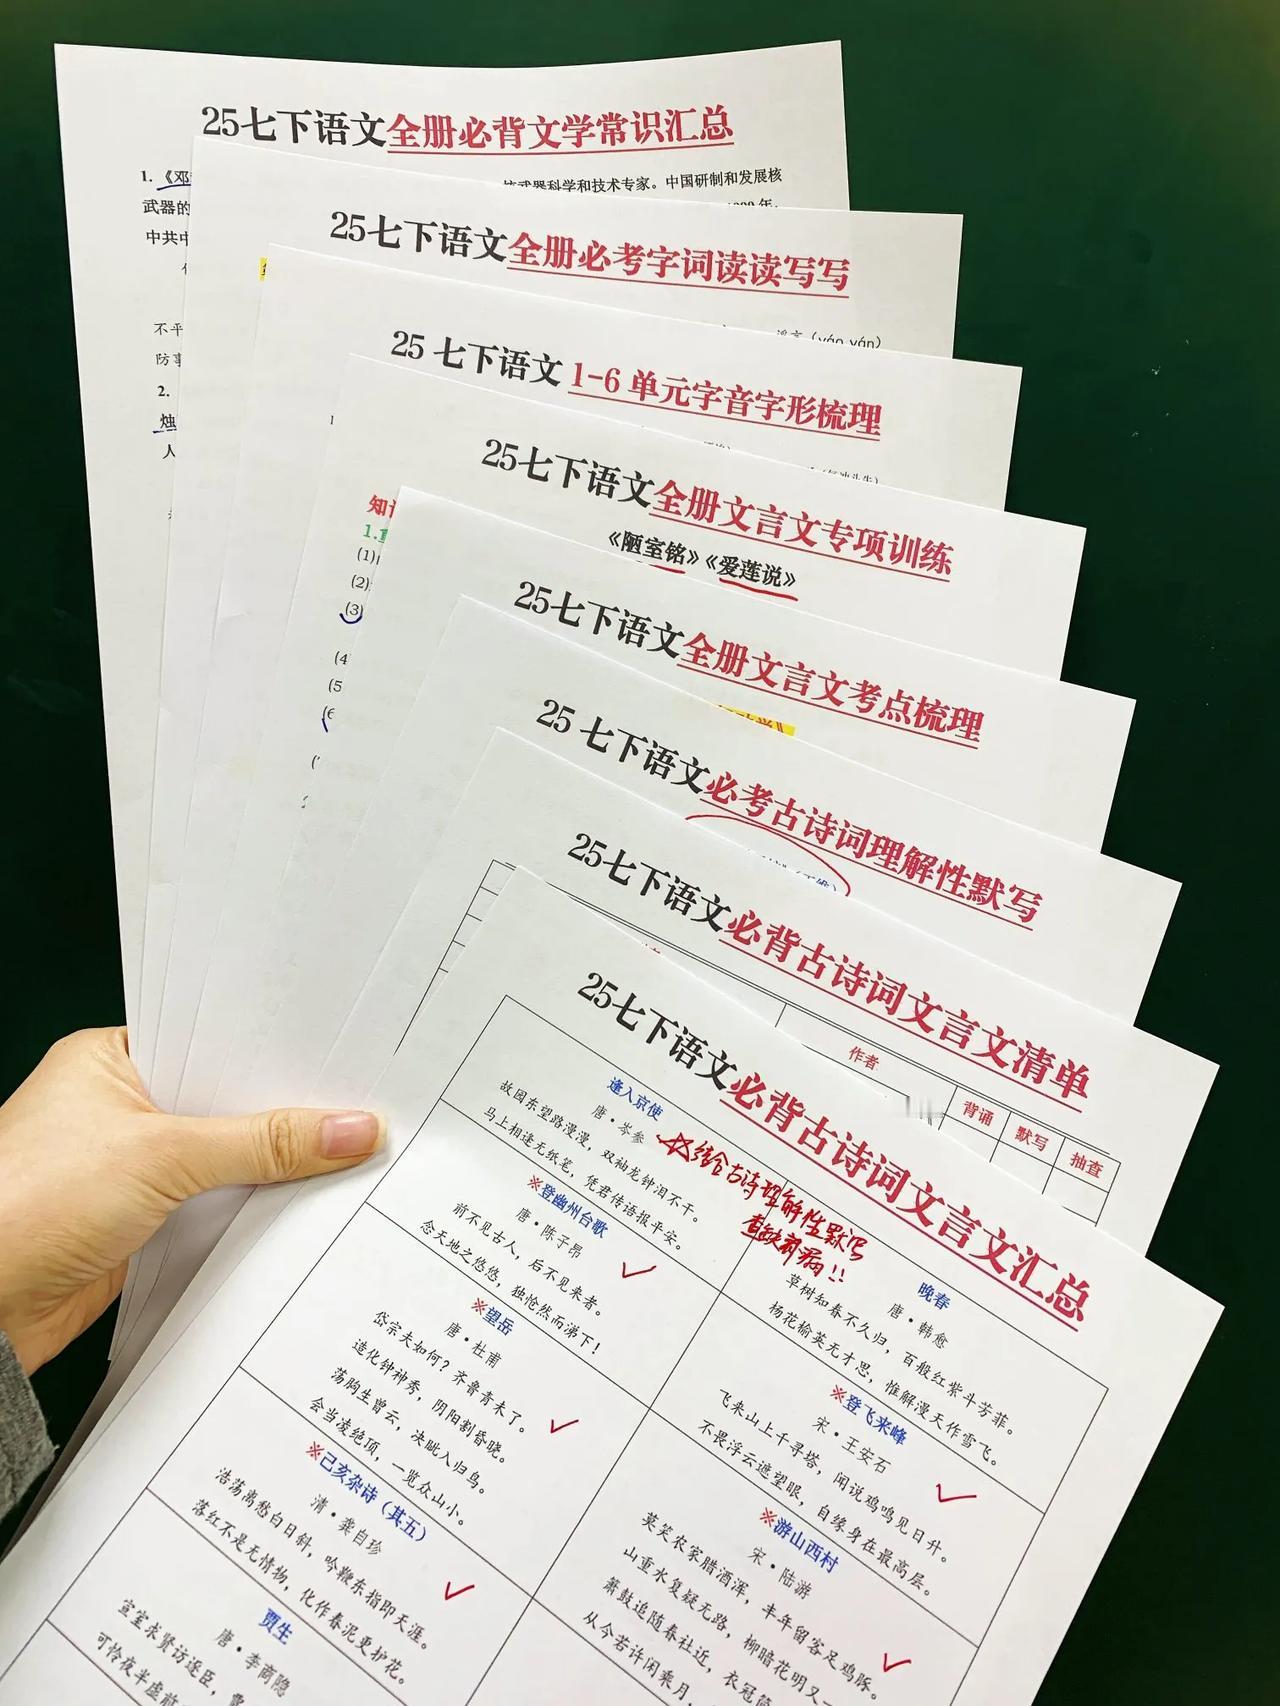 25七下语文全册必背文学常识汇总
1.《邓
核武器科学和技术专家。中国研制和发展核
武器的
中共中
不平
防事
2.
烛
人
25七下语文全册必考字词读读写写
(yán yán)
25 七下语文 1-6 单元字音字形梳理
25七下语文全册文言文专项训练
《陋室铭》《爱莲说》
知识
1.重
(1)
(2)
(3)
(4
(5
(6
25七下语文全册文言文考点梳理
25 七下语文必考古诗词理解性默写
25七下语文必背古诗词文言文清单
作者
背诵
默写
抽查
25七下语文必背古诗词文言文汇总
逢入京使
唐·岑参
故园东望路漫漫，双袖龙钟泪不干。
马上相逢无纸笔，凭君传语报平安。
☆结合古诗理解性默写
查缺补漏!!
※登幽州台歌
唐·陈子昂
前不见古人，后不见来者。
念天地之悠悠，独怆然而涕下！
※望岳
唐·杜甫
岱宗夫如何？齐鲁青未了。
造化钟神秀，阴阳割昏晓。
荡胸生曾云，决眦入归鸟。
会当凌绝顶，一览众山小。
※己亥杂诗（其五）
清·龚自珍
浩荡离愁白日斜，吟鞭东指即天涯。
落红不是无情物，化作春泥更护花。
贾生
唐·李商隐
宣室求贤访逐臣，贾
可怜夜半虚前
晚春
唐·韩愈
草树知春不久归，百般红紫斗芳菲。
杨花榆荚无才思，惟解漫天作雪飞。
※登飞来峰
宋·王安石
飞来山上千寻塔，闻说鸡鸣见日升。
不畏浮云遮望眼，自缘身在最高层。
※游山西村
宋·陆游
莫笑农家腊酒浑，丰年留客足鸡豚。
山重水复疑无路，柳暗花明又一
箫鼓追随春社近，衣冠简
从今若许闲乘月，